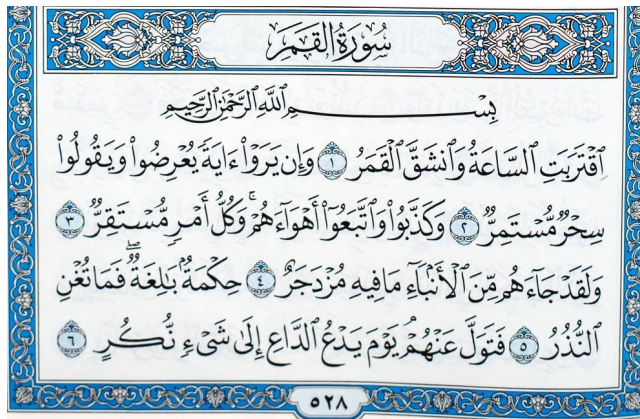 سُورَةُ القَمَرِ
بِسْمِ اللَّهِ الرَّحْمَٰنِ الرَّحِيمِ
اقْتَرَبَتِ السَّاعَةُ وَانشَقَّ الْقَمَرُ ١ وَإِن يَرَوْا ءَايَةً يُعْرِضُوا وَيَقُولُوا
سِحْرٌ مُّسْتَمِرٌّ ٢ وَكَذَّبُوا وَاتَّبَعُوا أَهْوَاءَهُمْ ۚ وَكُلُّ أَمْرٍ مُّسْتَقِرٌّ ٣
وَلَقَدْ جَاءَهُم مِّنَ الْأَنبَاءِ مَا فِيهِ مُزْدَجَرٌ ٤ حِكْمَةٌ بَالِغَةٌ ۖ فَمَا تُغْنِ
النُّذُرُ ٥ فَتَوَلَّ عَنْهُمْ يَوْمَ يَدْعُ الدَّاعِ إِلَىٰ شَيْءٍ نُّكُرٍ ٦
٥٢٨